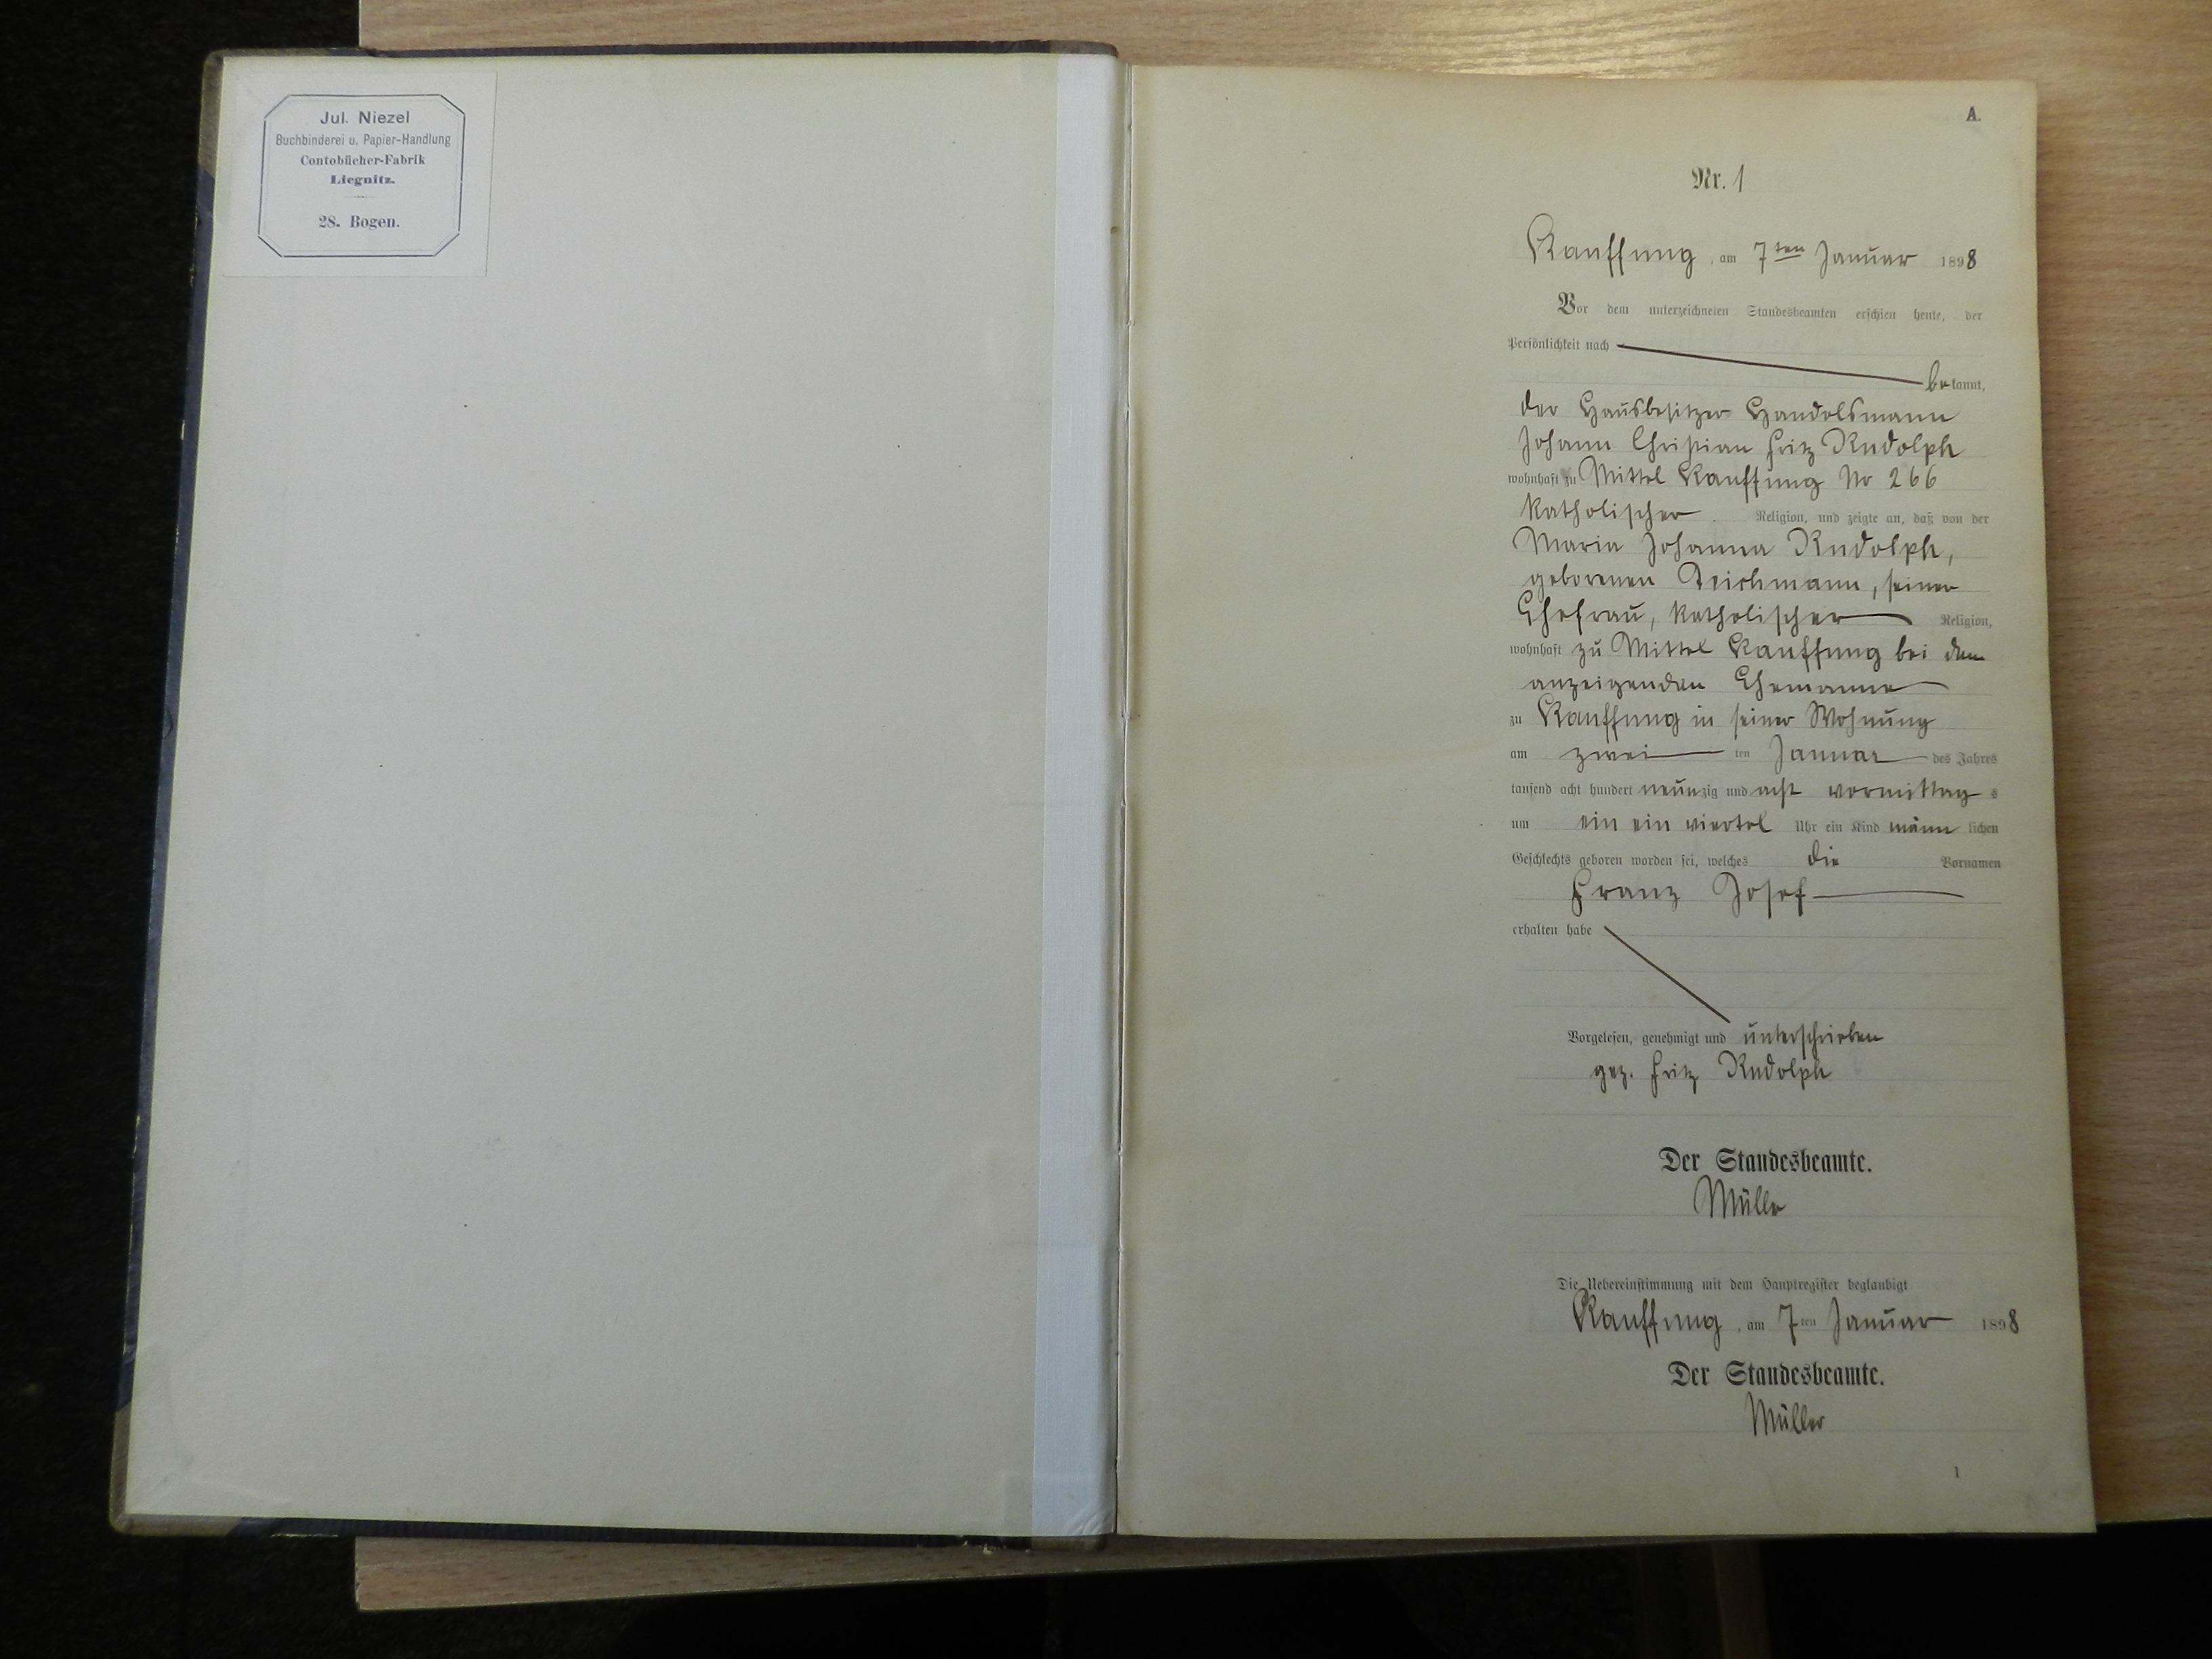 Jul. Niezel
Buchbinderei u. Papier-Handlung
Contobücher-Fabrik
Liegnitz.
28. Bogen.
A.
Nr. 1
Kauffung, am 7ten Januar 1898
Vor dem unterzeichneten Standesbeamten erschien heute, der
Persönlichkeit nach
bekannt,
der Hausbesitzer Handelsmann
Johann Christian Fritz Rudolph
wohnhaft zu Mittel Kauffung No 266
katholischer Religion, und zeigte an, daß von der
Maria Johanna Rudolph,
geborenen Teichmann, seiner
Ehefrau, katholischer Religion,
wohnhaft zu Mittel Kauffung bei dem
anzeigenden Ehemanne
zu Kauffung in seiner Wohnung
am zwei ten Januar des Jahres
tausend acht hundert neunzig und acht vormittags
um ein ein viertel Uhr ein Kind männlichen
Geschlechts geboren worden sei, welches die Vornamen
Franz Josef
erhalten habe
Vorgelesen, genehmigt und unterschrieben
gez. Fritz Rudolph
Der Standesbeamte.
Müller
Die Uebereinstimmung mit dem Hauptregister beglaubigt
Kauffung, am 7ten Januar 1898
Der Standesbeamte.
Müller
1